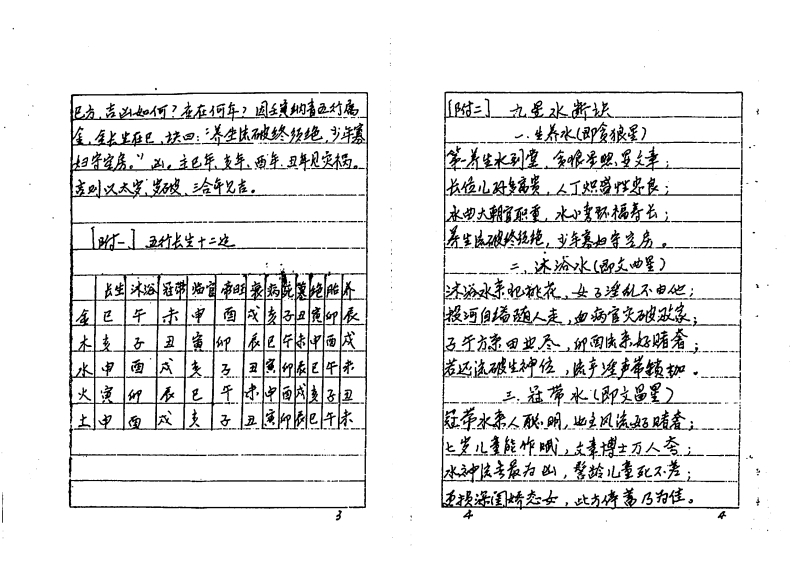 巳方,吉凶如何?应在何年?因壬寅纳音五行属
金,金长生在巳,诀曰:“养生流破终须绝,少年寡
妇守空房。”凶。主巳年、亥年、酉年、丑年见灾祸。
吉则以太岁、岁破、三合年见吉。
[附一] 五行长生十二运
长生 沐浴 冠带 临官 帝旺 衰 病 死 墓 绝 胎 养
金 巳 午 未 申 酉 戌 亥 子 丑 寅 卯 辰
木 亥 子 丑 寅 卯 辰 巳 午 未 申 酉 戌
水 申 酉 戌 亥 子 丑 寅 卯 辰 巳 午 未
火 寅 卯 辰 巳 午 未 申 酉 戌 亥 子 丑
土 申 酉 戌 亥 子 丑 寅 卯 辰 巳 午 未
3
[附二] 九星水断诀
一.生养水(即贪狼星)
第一养生水到堂,贪狼星照显文章;
长位儿孙多富贵,人丁炽盛性忠良;
水曲大朝官职重,水小弯环福寿长;
养生流破终须绝,少年寡妇守空房。
二.沐浴水(即文曲星)
沐浴水来犯桃花,女子淫乱不由他;
投河自缢随人走,血病官灾破败家;
子午方来田业尽,卯酉流来好赌奢;
若还流破生神位,流产淫声带锁枷。
三.冠带水(即文昌星)
冠带水来人聪明,也主风流好赌奢;
七岁儿童能作赋,文章博士万人夸;
水神流去最为凶,髫龄儿童死不差;
更损深闺娇态女,此方停蓄乃为佳。
4
4